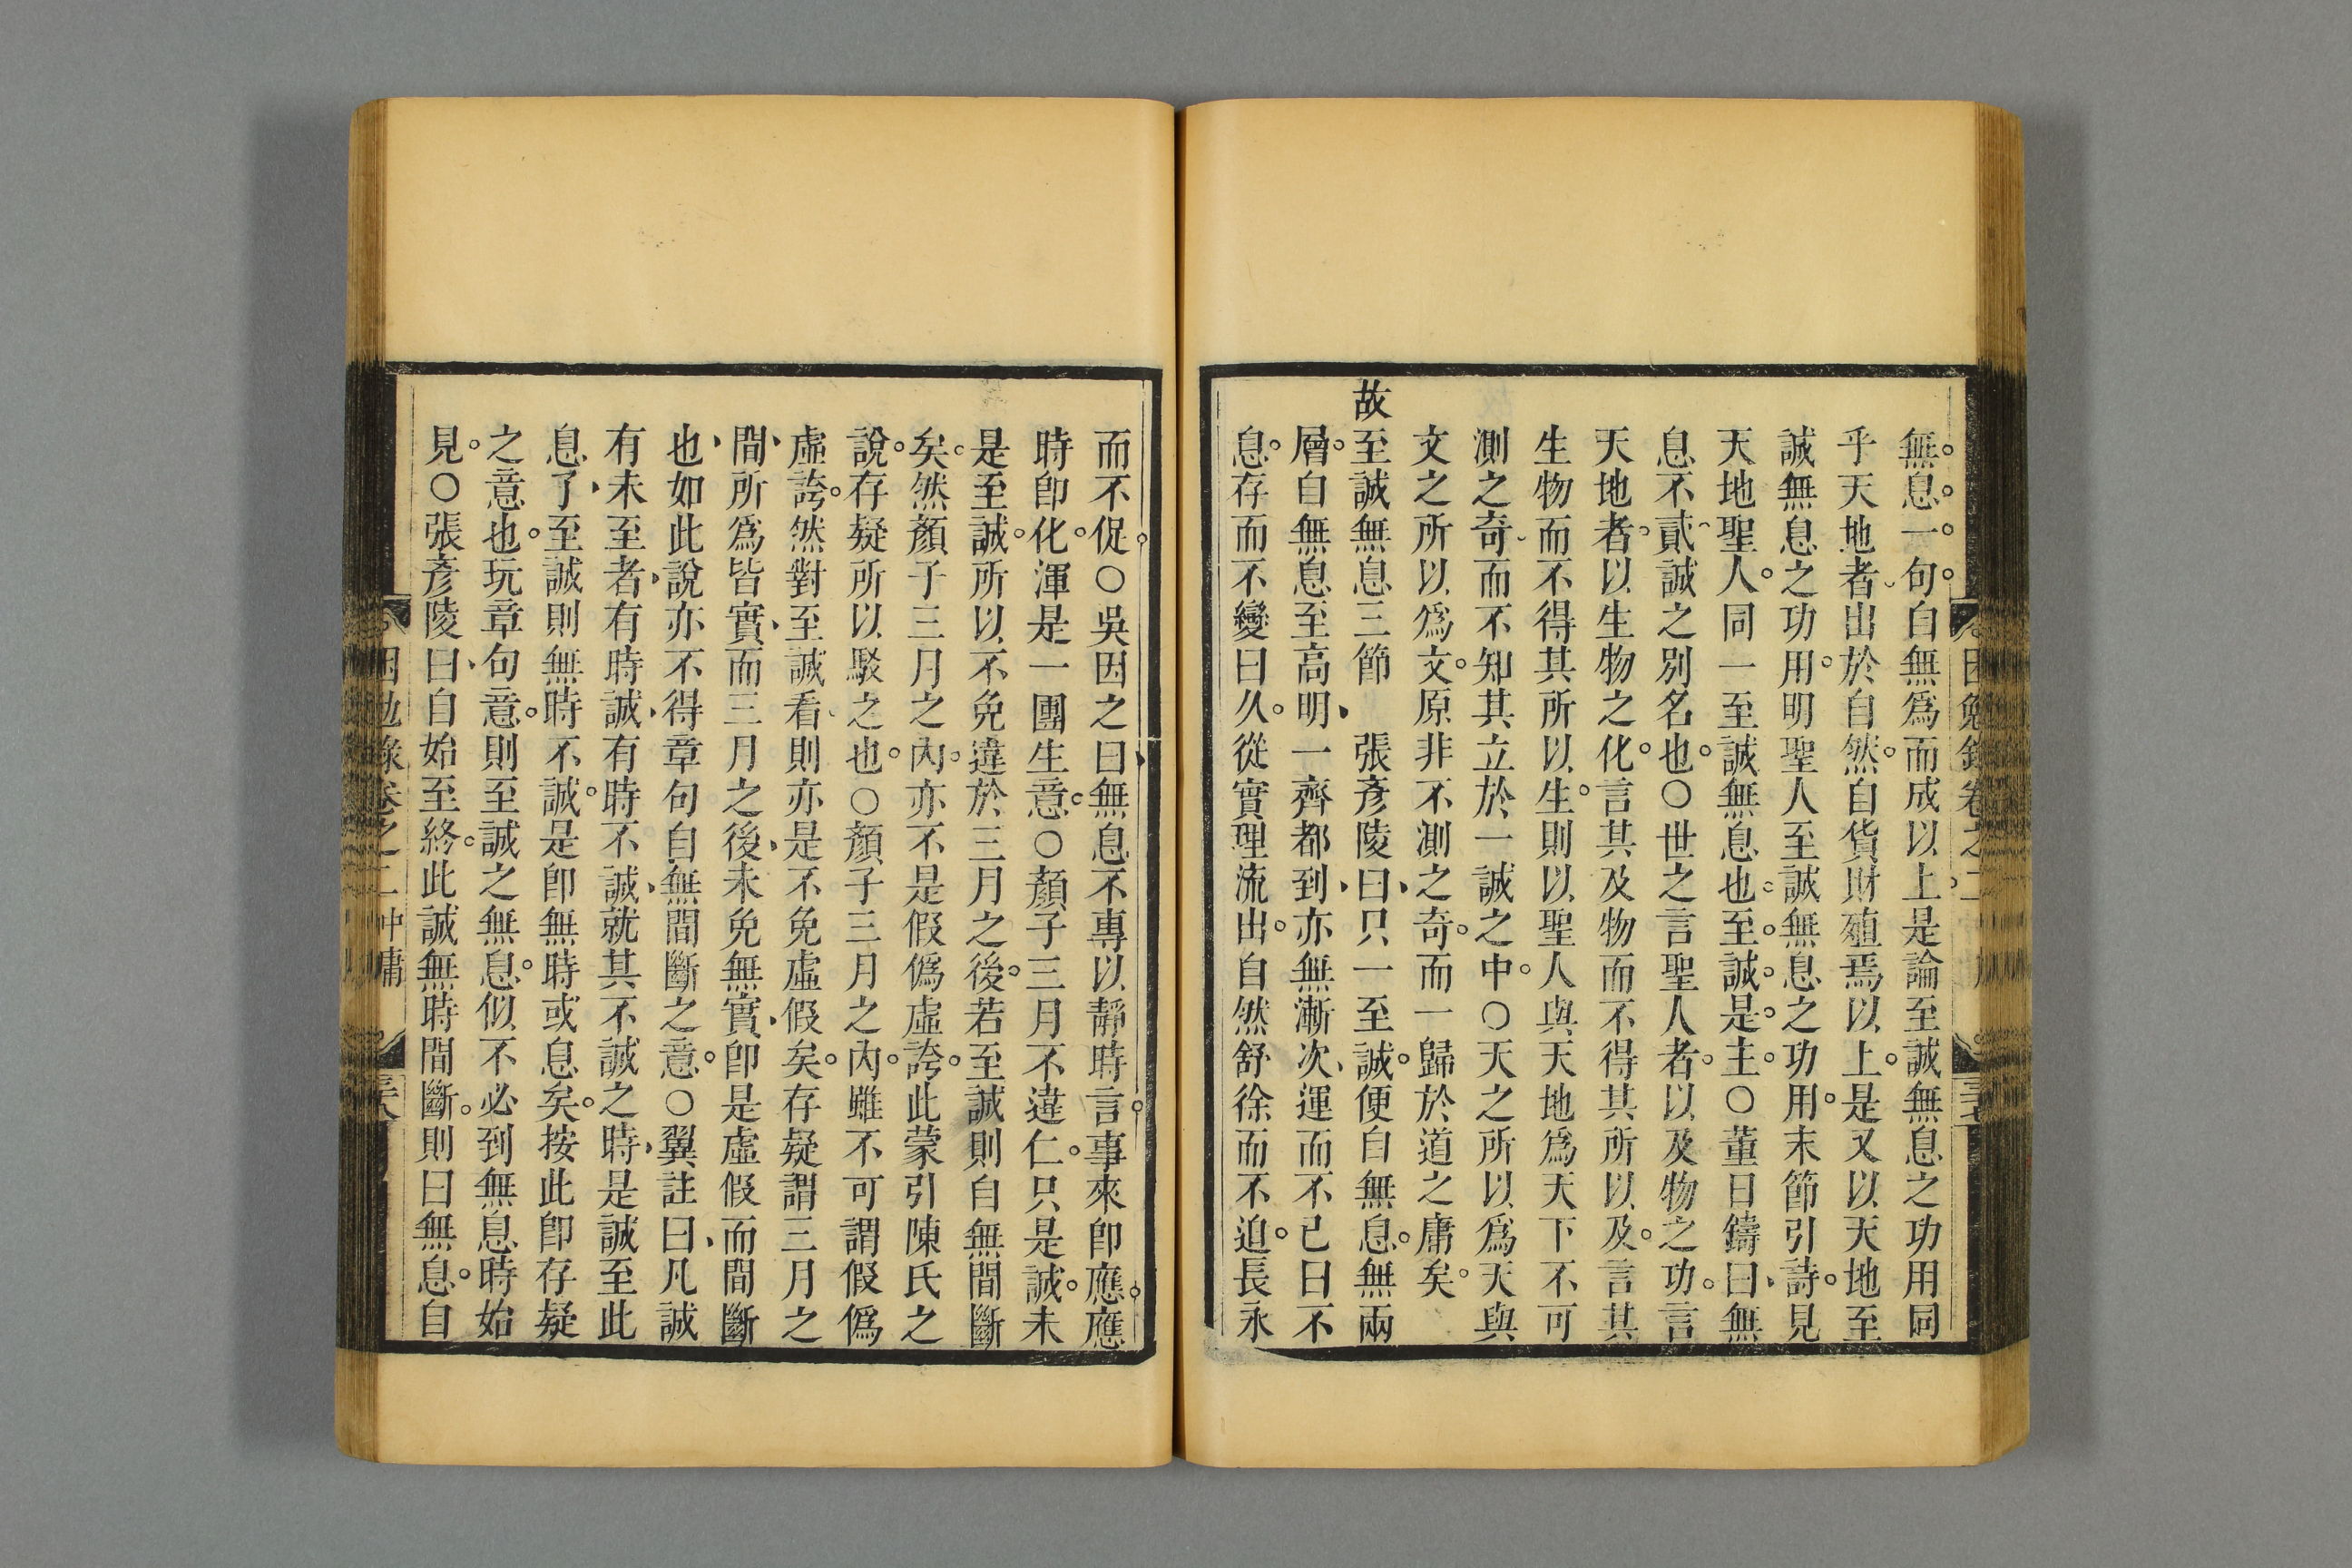 無息一句自無爲而成以上是論至誠無息之功用同
乎天地者出於自然自貨財殖焉以上是又以天地至
誠無息之功用明聖人至誠無息之功用末節引詩見
天地聖人同一至誠無息也至誠是主○董日鑄曰無
息不貳誠之別名也○世之言聖人者以及物之功言
天地者以生物之化言其及物而不得其所以及言其
生物而不得其所以生則以聖人與天地爲天下不可
測之奇而不知其立於一誠之中○天之所以爲天與
文之所以爲文原非不測之奇而一歸於道之庸矣
故至誠無息三節　張彥陵曰只一至誠便自無息無兩
層自無息至高明一齊都到亦無漸次運而不已曰不
息存而不變曰久從實理流出自然舒徐而不迫長永
而不促○吳因之曰無息不專以靜時言事來卽應應
時卽化渾是一團生意○顏子三月不違仁只是誠未
是至誠所以不免違於三月之後若至誠則自無間斷
矣然顏子三月之內亦不是假僞虛誇此蒙引陳氏之
說存疑所以駁之也○顏子三月之內雖不可謂假僞
虛誇然對至誠看則亦是不免虛假矣存疑謂三月之
間所爲皆實而三月之後未免無實卽是虛假而間斷
也如此說亦不得章句自無間斷之意○翼註曰凡誠
有未至者有時誠有時不誠就其不誠之時是誠至此
息了至誠則無時不誠是卽無時或息矣按此卽存疑
之意也玩章句意則至誠之無息似不必到無息時始
見○張彥陵曰自始至終此誠無時間斷則曰無息自
困勉錄卷之二 中庸 三十八